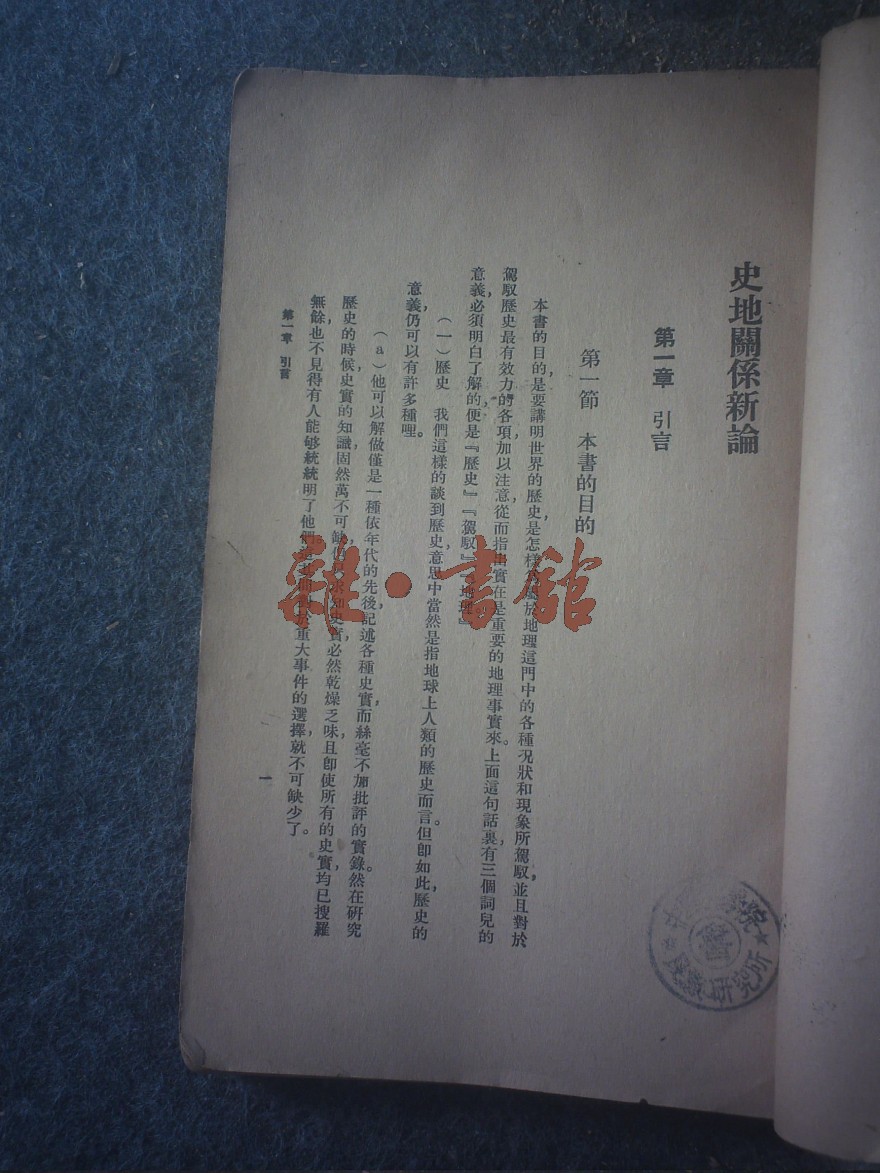 史地關係新論
第一章 引言
第一節 本書的目的
本書的目的是要講明世界的歷史是怎樣於地理這門中的各種況狀和現象所駕馭，並且對於
駕馭歷史最有效力的各項加以注意，從而指出實在是重要的地理事實來。上面這句話裏，有三個詞兒的
意義必須明白了解的，便是『歷史』『駕馭』『地理』
（一）歷史 我們這樣的談到歷史，意思中當然是指地球上人類的歷史而言。但即如此，歷史的
意義，仍可以有許多種哩。
（a）他可以解做僅是一種依年代的先後，記述各種史實，而絲毫不加批評的實錄。然在研究
歷史的時候，史實的知識，固然萬不可缺，知史實，必然乾燥乏味，且即使所有的史實，均已搜羅
無餘，也不見得有人能够統統明了他們。於重大事件的選擇，就不可缺少了。
第一章 引言
一
雜·書館
院
研究所